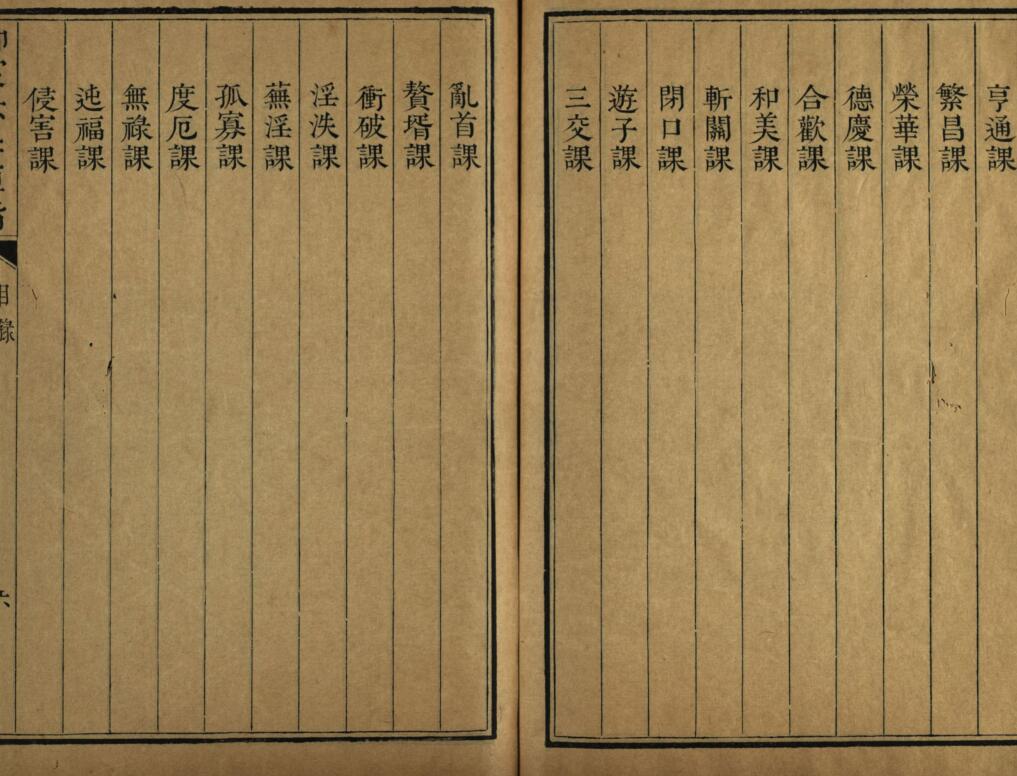 亨通課
繁昌課
榮華課
德慶課
合歡課
和美課
斬關課
閉口課
遊子課
三交課
亂首課
贅壻課
衝破課
淫泆課
蕪淫課
孤寡課
度厄課
無祿課
迍福課
侵害課
目錄
六